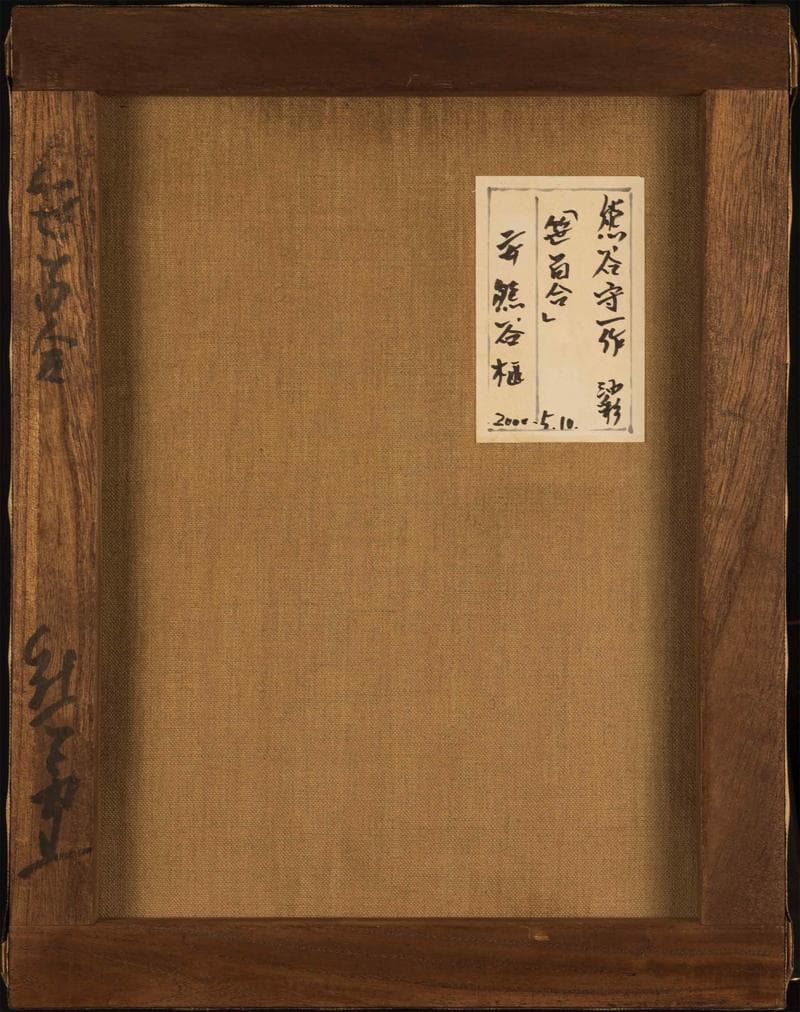 熊谷守一作 油彩
「笹百合」
熊谷榧
2000.5.10.
笹百合
熊谷守一